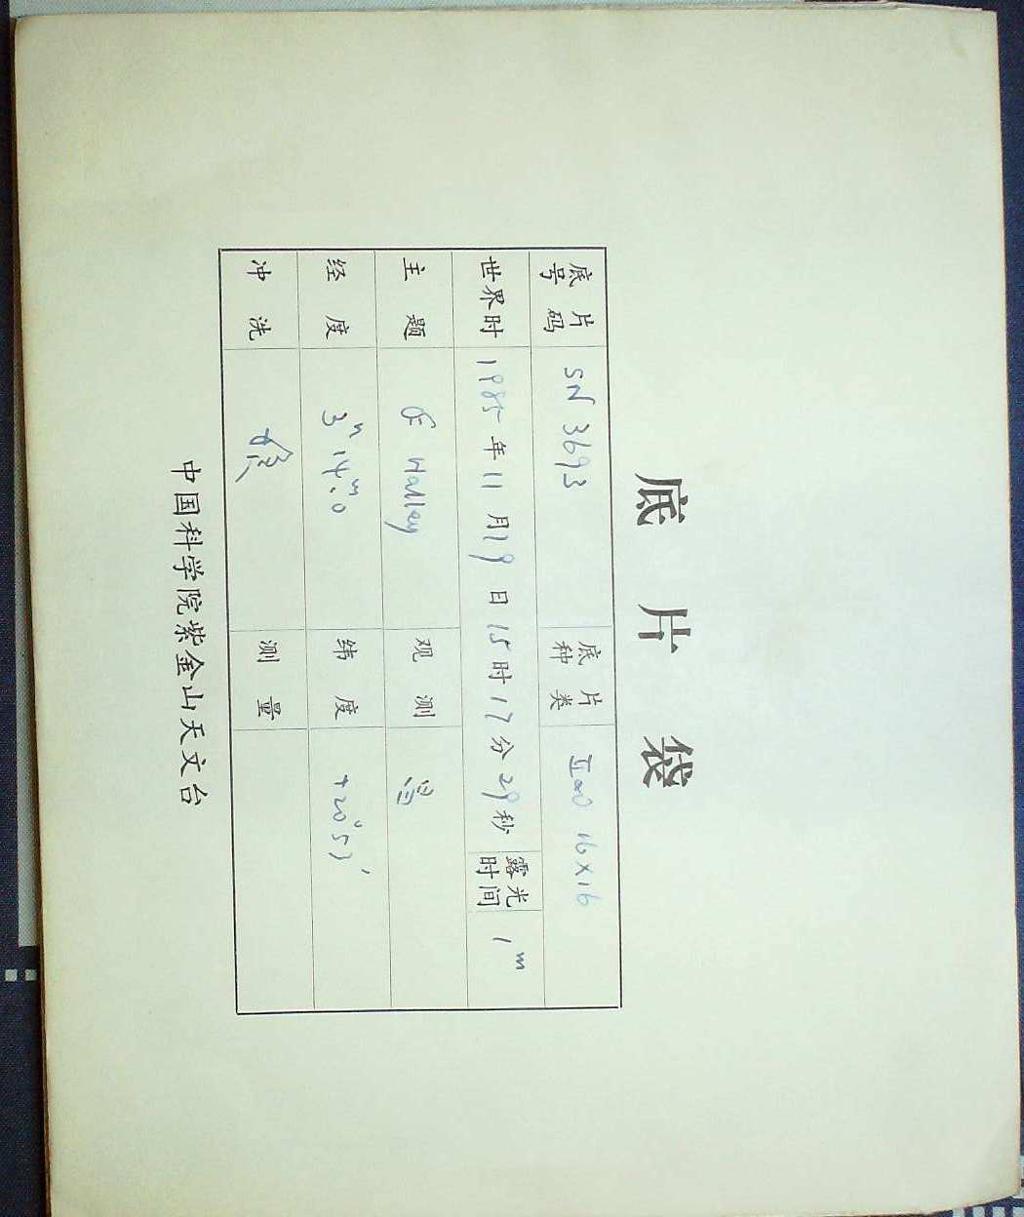 底片袋
底片号码 SN 3693 底片种类 IIaO 16×16
世界时 1985年11月19日15时17分29秒 露光时间 1ᵐ
主题 Halley 观测
经度 3ʰ 14ᵐ.0 纬度 +20°53′
冲洗 测量
中国科学院紫金山天文台